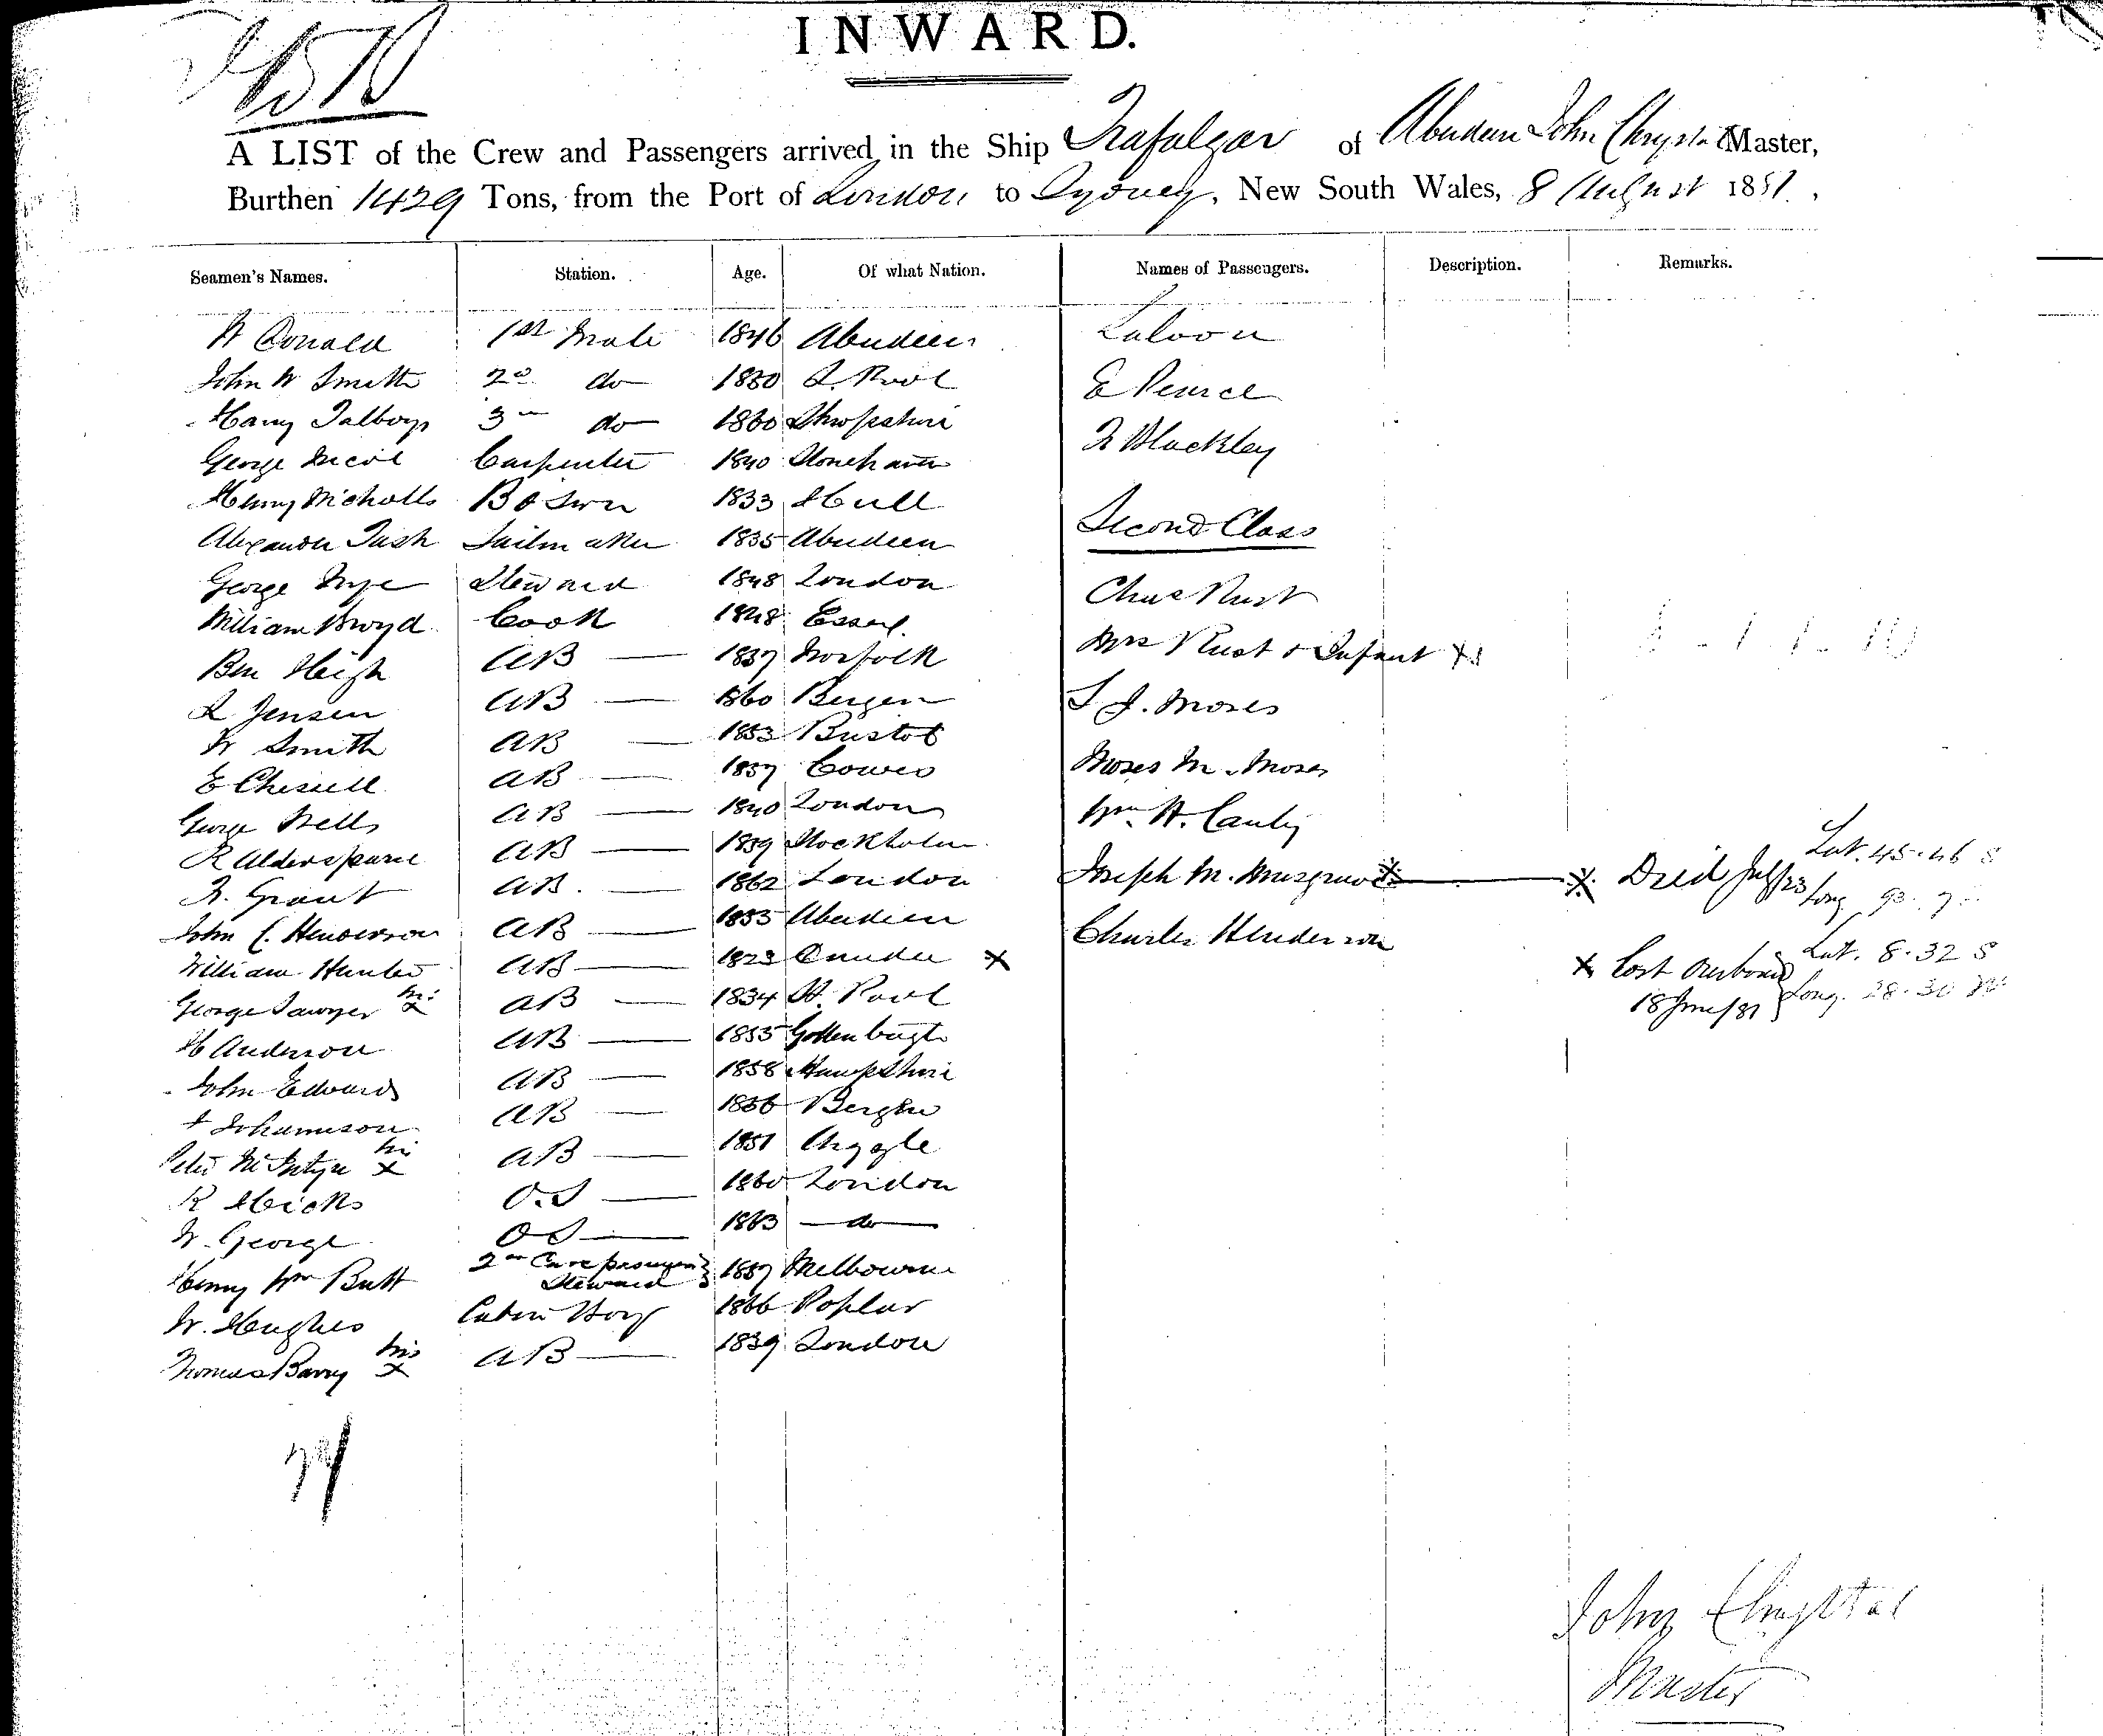 INWARD.
A LIST of the Crew and Passengers arrived in the Ship Trafalgar of Aberdeen John Chrystal Master,
Burthen 1429 Tons, from the Port of London to Sydney, New South Wales, 8 August 1881.
Seamen's Names. Station. Age. Of what Nation. Names of Passengers. Description. Remarks.
W Donald 1st Mate 1846 Aberdeen Saloon
John W Smith 2d do 1850 L. Pool E Pearce
Harry Talboys 3rd do 1860 Shropshire F Blackley
George Nicol Carpenter 1840 Stonehaven
Henry Nicholls Boswn 1833 Hull Second Class
Alexander Tash Sailmaker 1835 Aberdeen
George Nye Steward 1848 London Chas Rust
William Boyd Cook 1848 Essex
Ben Heigh AB 1837 Norfolk Mrs Rust & Infant
L Jensen AB 1860 Bergen S J. Moses
W Smith AB 1853 Bristol
E Chessell AB 1837 Cowes Moses M. Moses
George Wells AB 1840 London Wm H.
R AB 1839 Stockholm Lat. 45.46 S
F. Grant AB. 1862 London Joseph M. Musgrove X X Died July/23 Long 93.7
John C. Henderson AB 1855 Aberdeen Charles Henderson
William Hunter AB 1823 Dundee X X Lost Overboard Lat. 8.32 S
George Sawyer his X AB 1834 St. Paul 18 June/81 Long. 28.30 W
H Anderson AB 1855 Gottenburgh
John Edwards AB 1858 Hampshire
Johannson AB 1856 Bergen
Peter McIntyre his X AB 1851 Argyle
R Hicks O.S 1860 London
W. George OS 1863 do
Henry Wm Butt 2nd Steward 1857 Melbourne
W. Hughes Cabin Boy 1866 Poplar
Thomas Barry his X AB 1839 London
John Chrystal
Master